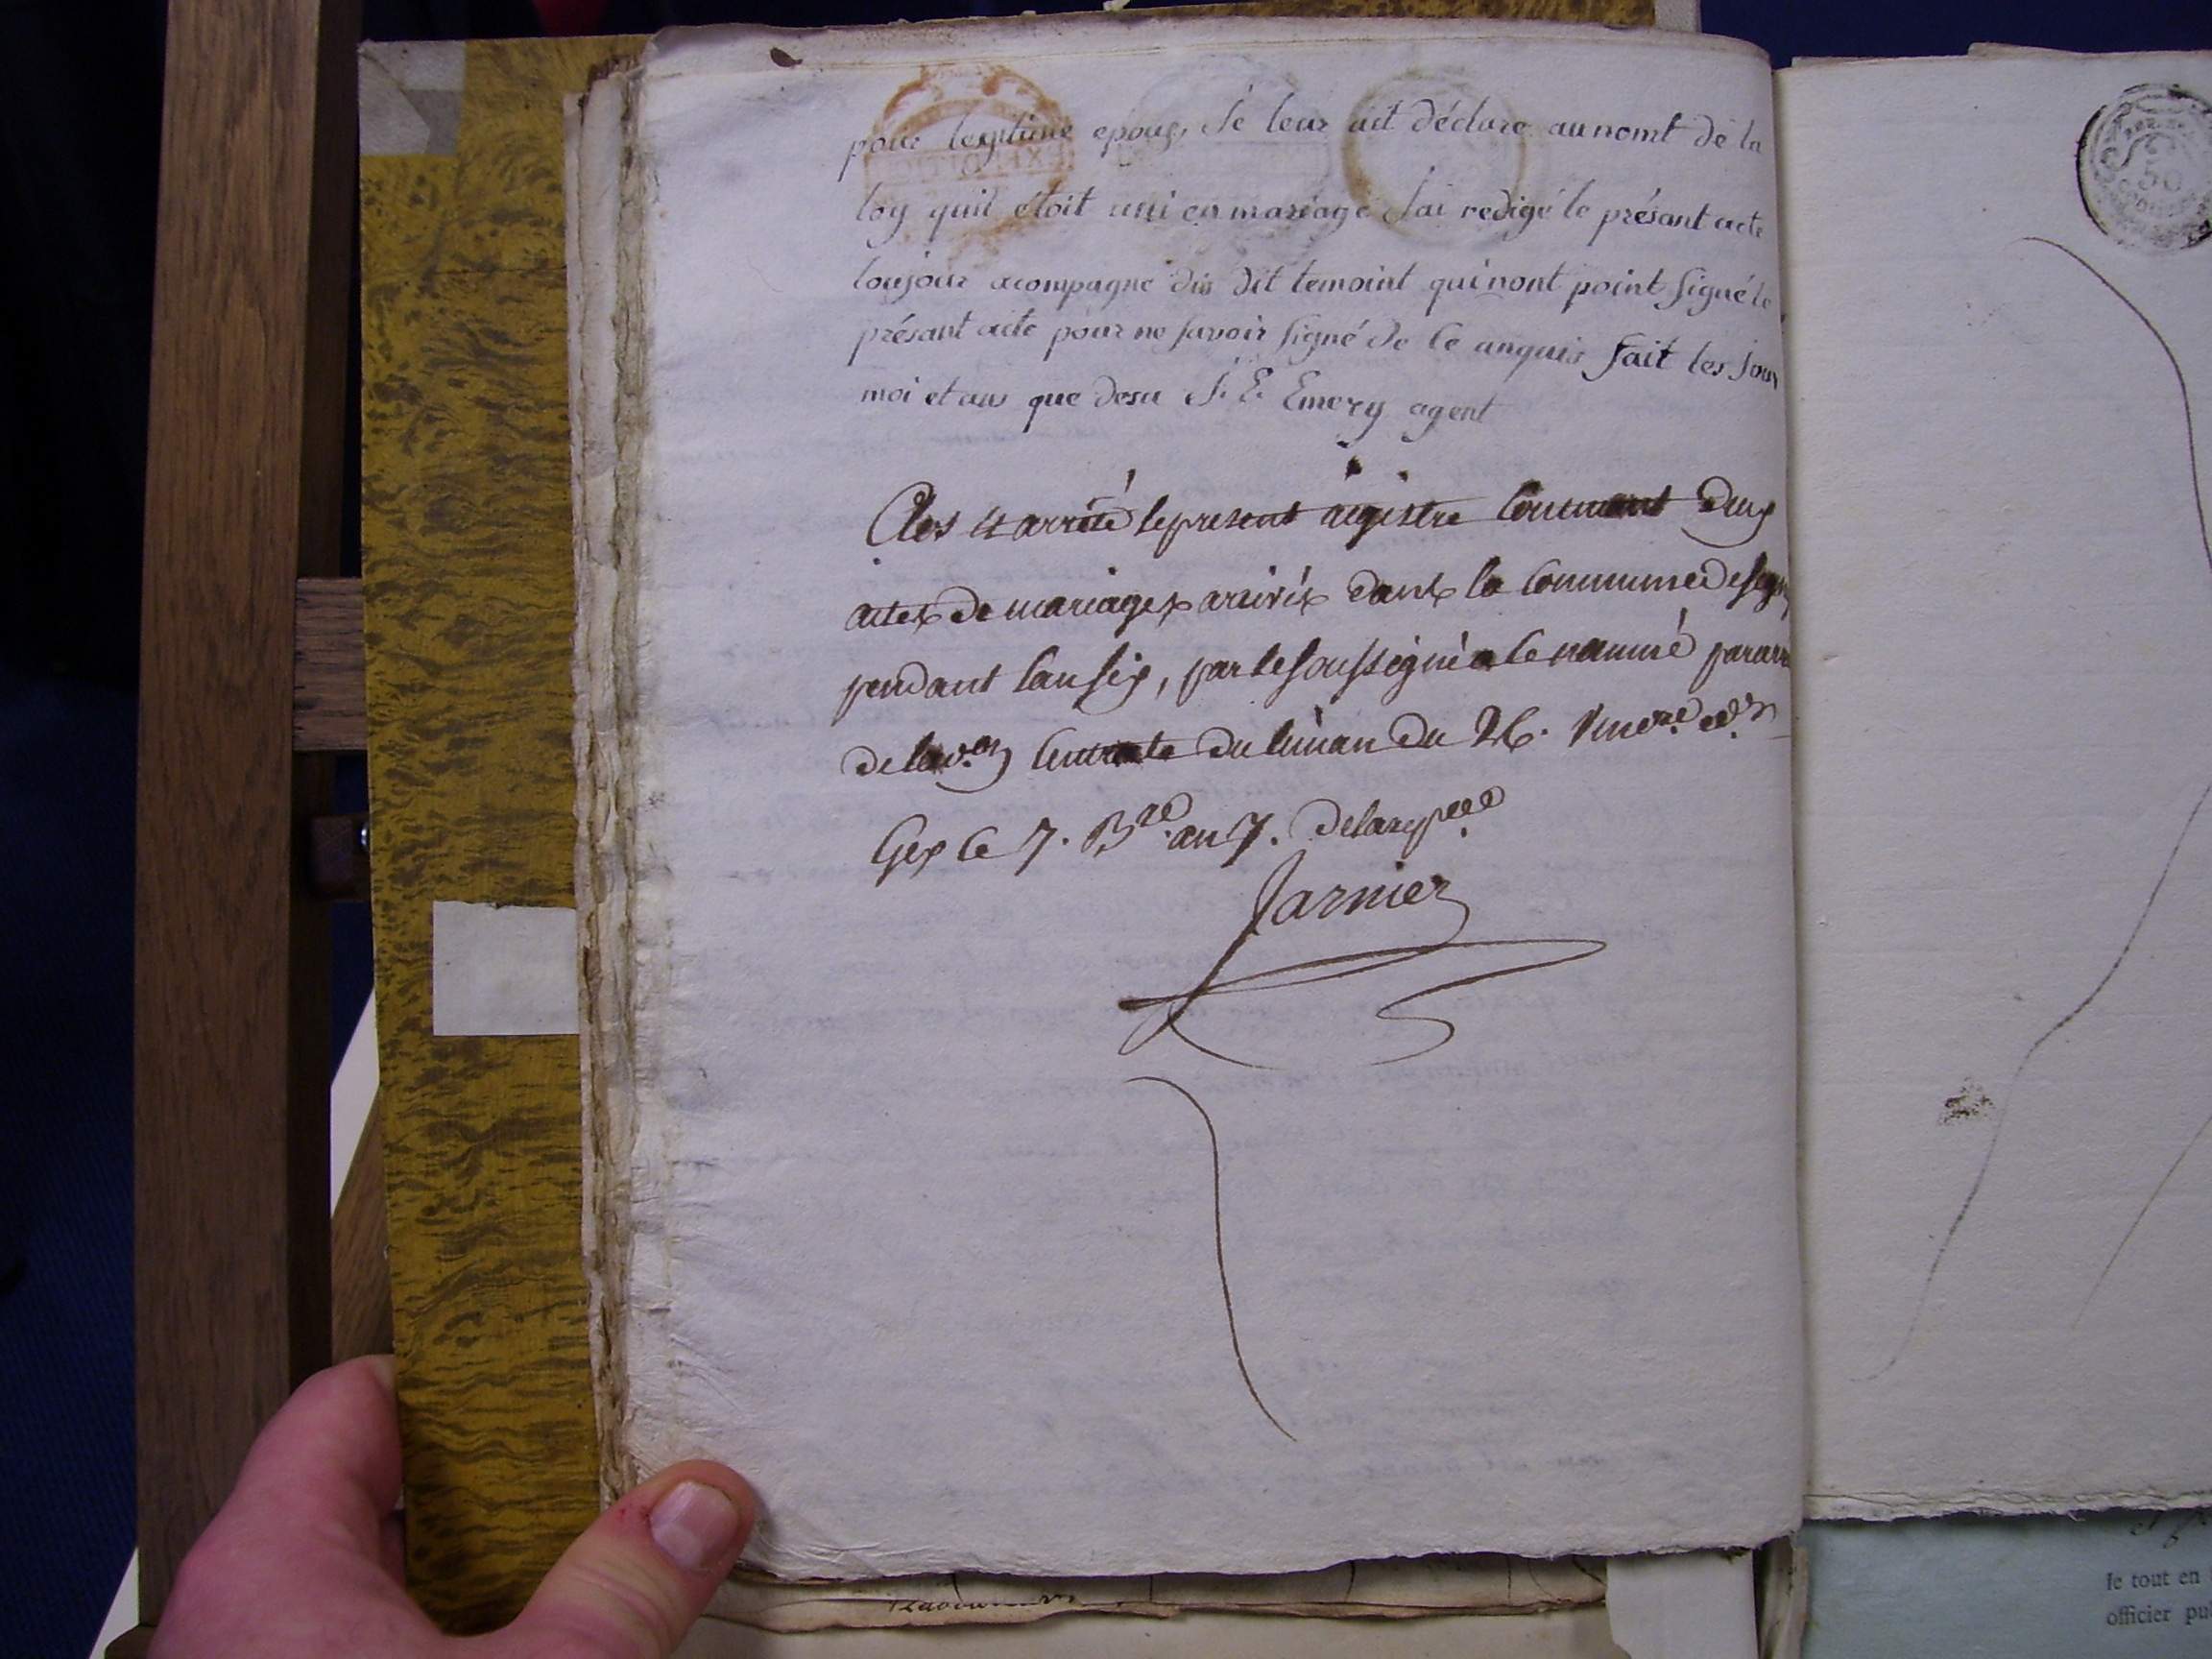 pour legitime epoug, Je leur ait déclare au nomt de la
loy quil étoit uni en mariage Jai redigé le présant acte
toujour acompagne dis dit temoint qui nont point signé le
présant acte pour ne savoir signé de ce anquis fait les Jour
moi et ans que desu J. E. Emery agent
Clos et arrêté le present régistre Contenant deux
actes de mariages arrivés dans la Commune de
pendant l'an six, par le soussigné a le nommé par
de l'adon Centrale du Léman du 26. Vendre dr
Gex le 7. Bre an 7. de la repce
Jarnier
50
le tout en
officier pu